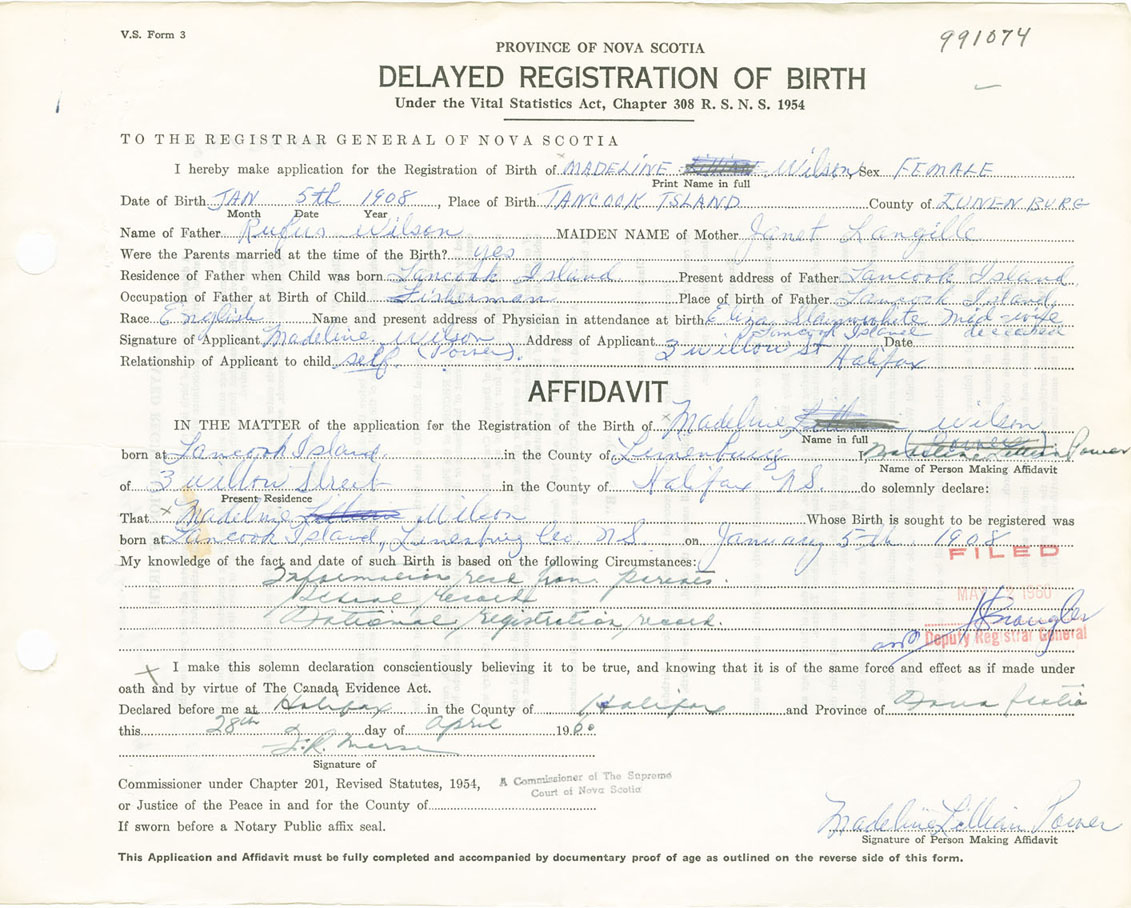 V.S. Form 3
991074
PROVINCE OF NOVA SCOTIA
DELAYED REGISTRATION OF BIRTH
Under the Vital Statistics Act, Chapter 308 R. S. N. S. 1954
TO THE REGISTRAR GENERAL OF NOVA SCOTIA
I hereby make application for the Registration of Birth of MADELINE Wilson Sex FEMALE
Print Name in full
Date of Birth JAN 5th 1908, Place of Birth TANCOOK ISLAND County of LUNENBURG
Month Date Year
Name of Father Rufus Wilson MAIDEN NAME of Mother Janet Langille
Were the Parents married at the time of the Birth? yes
Residence of Father when Child was born Tancook Island Present address of Father Tancook Island
Occupation of Father at Birth of Child Fisherman Place of birth of Father Tancook Island
Race English Name and present address of Physician in attendance at birth Eliza Slaunwhite Mid-wife
Tancook Island deceased
Signature of Applicant Madeline Wilson Address of Applicant 3 Willow St Date
Relationship of Applicant to child self (Power). Halifax
AFFIDAVIT
IN THE MATTER of the application for the Registration of the Birth of Madeline Wilson
Name in full
born at Tancook Island in the County of Lunenburg I Madeline Lillian Power
Name of Person Making Affidavit
of 3 Willow Street in the County of Halifax N.S. do solemnly declare:
Present Residence
That Madeline Wilson Whose Birth is sought to be registered was
born at Tancook Island, Lunenburg Co N.S on January 5th 1908
FILED
My knowledge of the fact and date of such Birth is based on the following Circumstances:
Information recd from parents.
MAY 1960
School records
National registration record.
Deputy Registrar General
I make this solemn declaration conscientiously believing it to be true, and knowing that it is of the same force and effect as if made under
oath and by virtue of The Canada Evidence Act.
Declared before me at Halifax in the County of Halifax and Province of Nova Scotia
this 28th day of April 1960
Signature of
Commissioner under Chapter 201, Revised Statutes, 1954,
A Commissioner of The Supreme
Court of Nova Scotia
or Justice of the Peace in and for the County of
If sworn before a Notary Public affix seal.
Madeline Lillian Power
Signature of Person Making Affidavit
This Application and Affidavit must be fully completed and accompanied by documentary proof of age as outlined on the reverse side of this form.